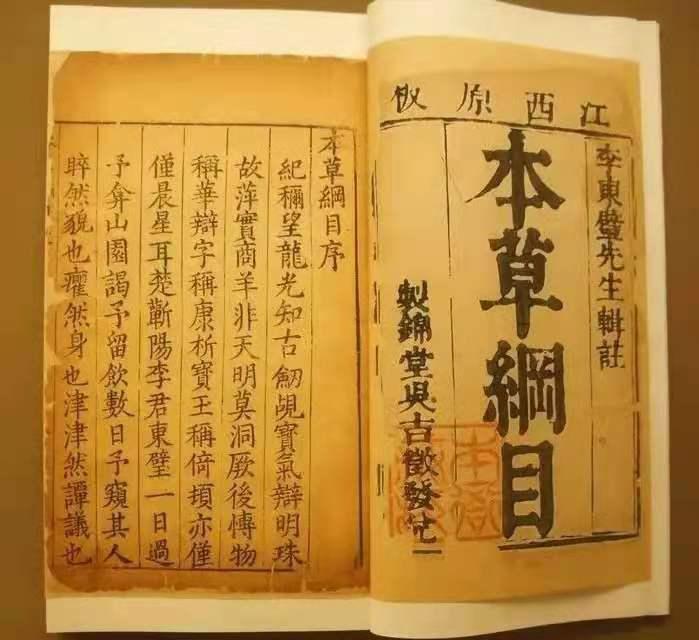 江西原板
李東璧先生輯註
本草綱目
製錦堂吳吉徵發兌
本草綱目序
紀穪望龍光知古劒覘寶氣辯明珠
故萍實商羊非天明莫洞厥後博物
稱華辯字稱康析寶玉稱倚頓亦僅
僅晨星耳楚蘄陽李君東璧一日過
予弇山園謁予留飲數日予窺其人
睟然貌也癯然身也津津然譚議也